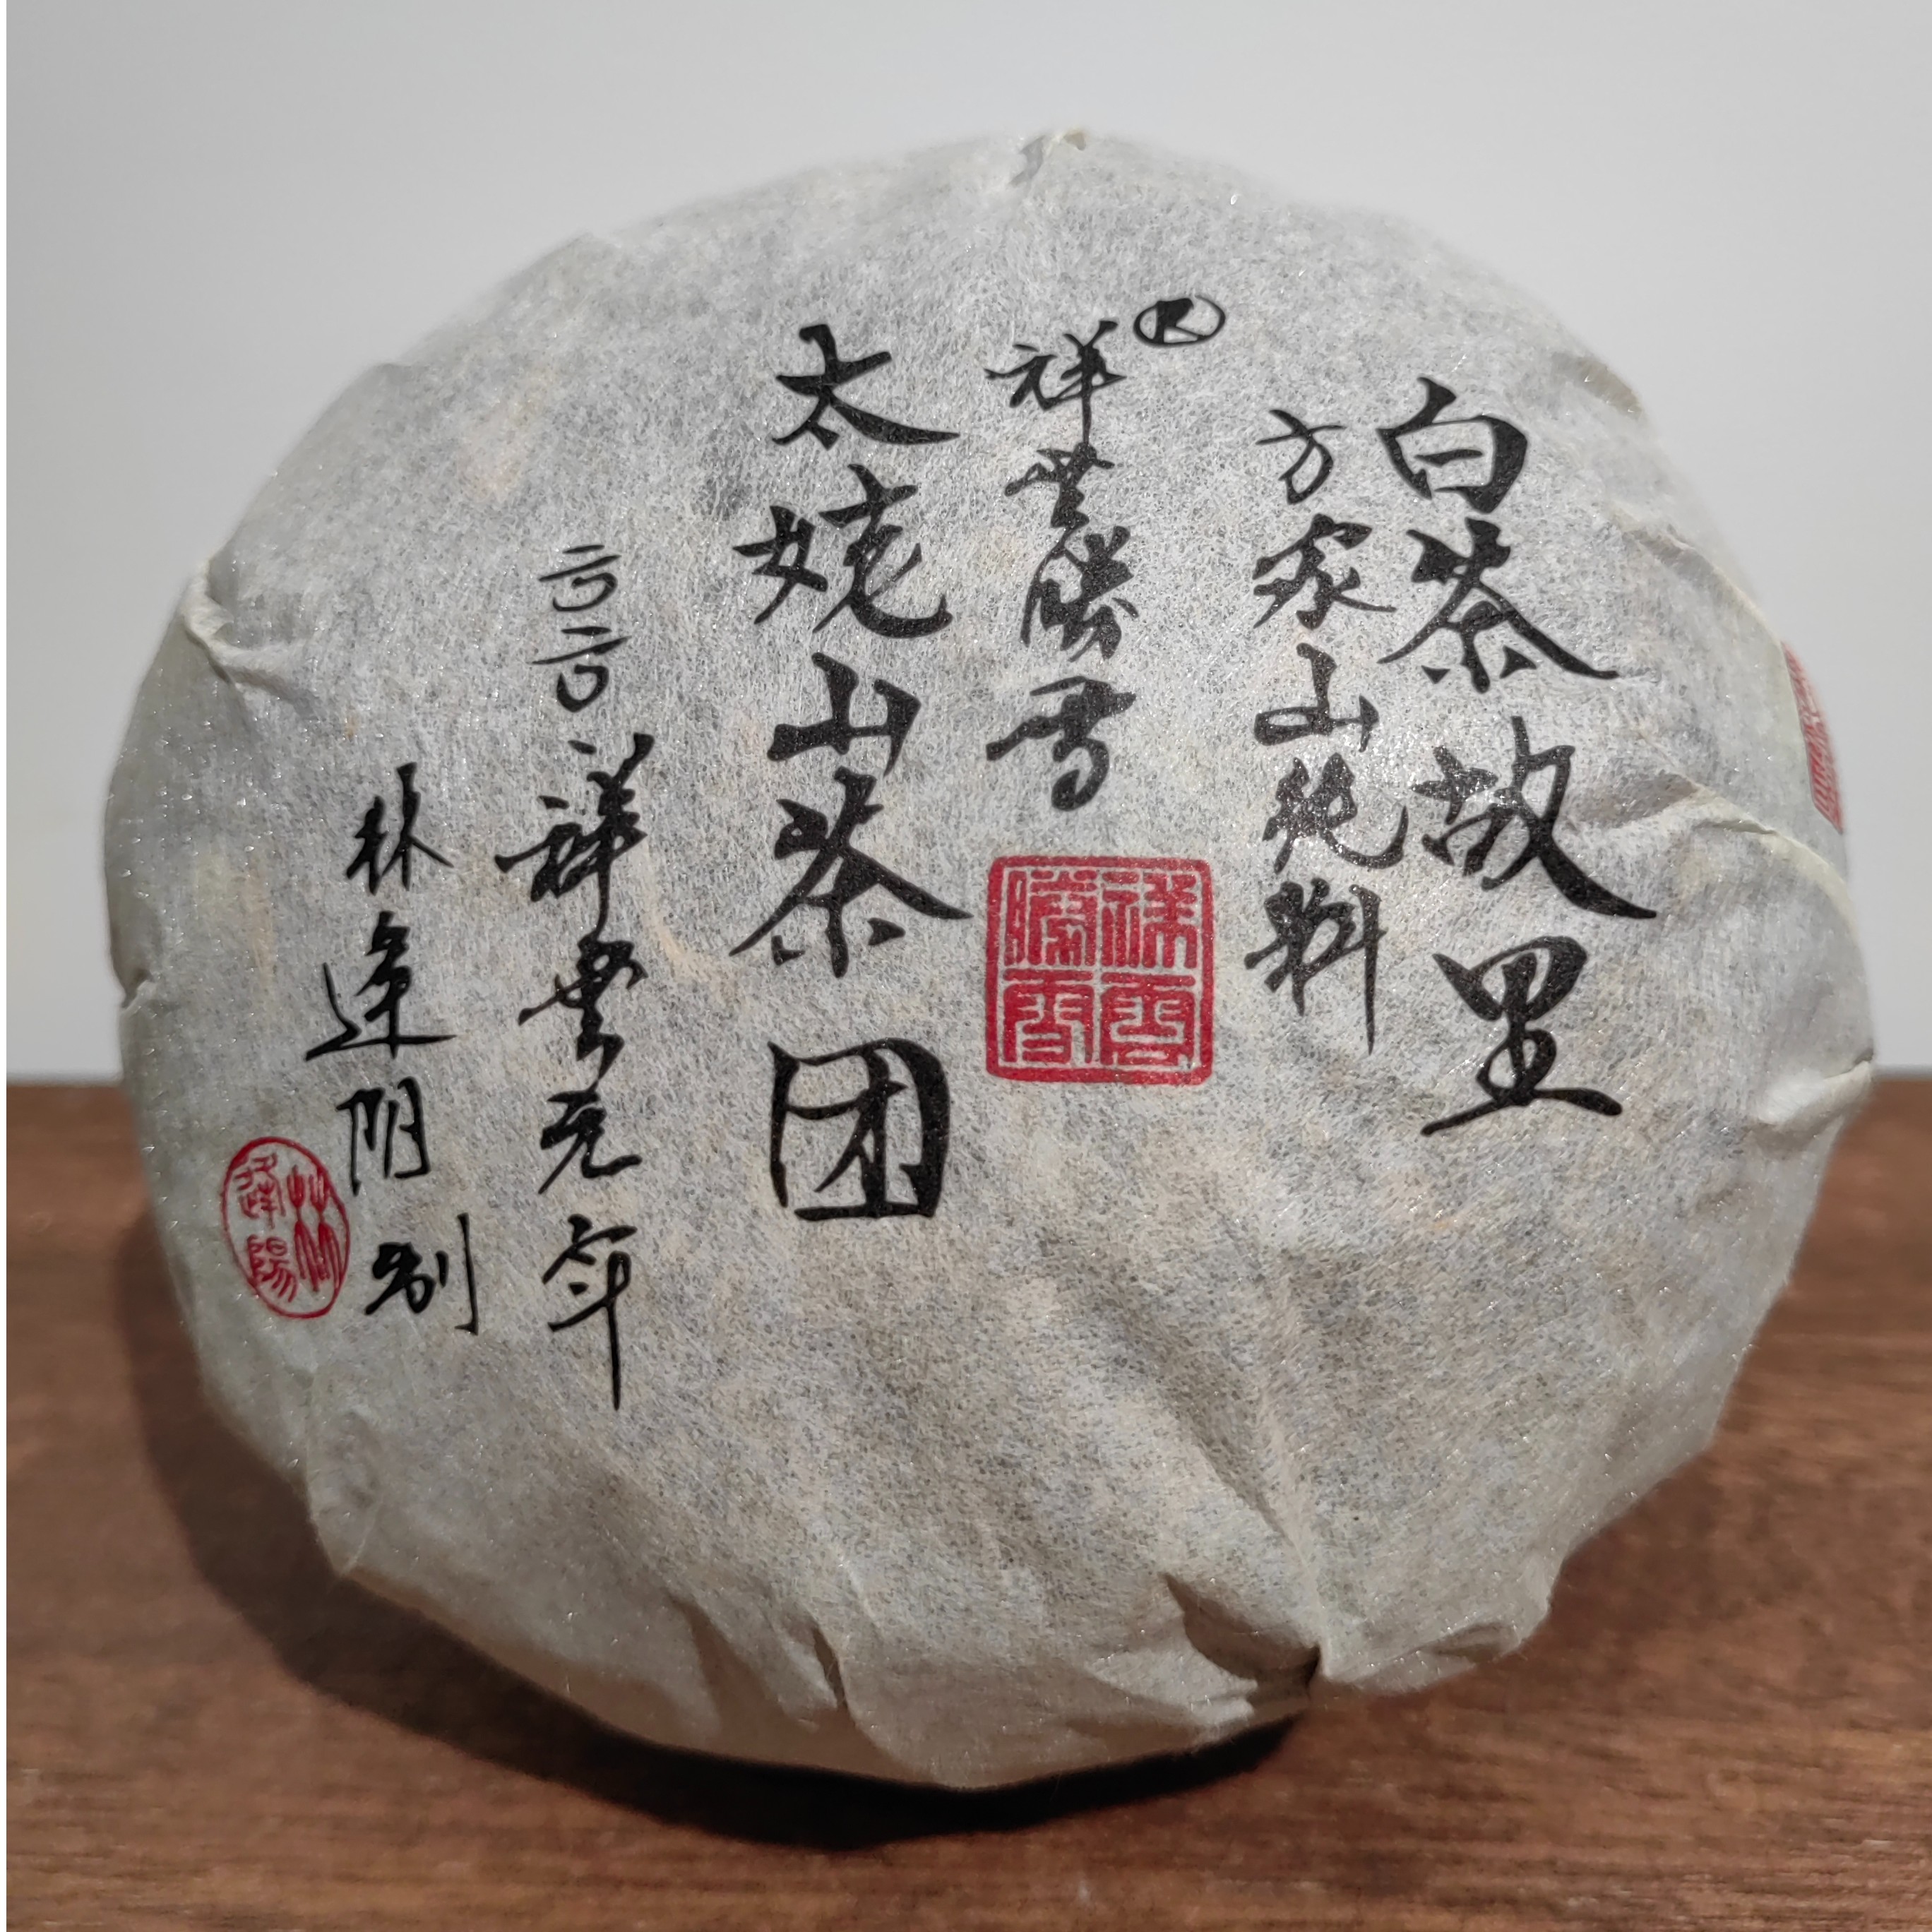 白茶故里
方家山纯料
®
祥云腾雪
祥云腾雪
太姥山茶团
二〇二〇
祥雲元年
林逢阳制
林逢陽